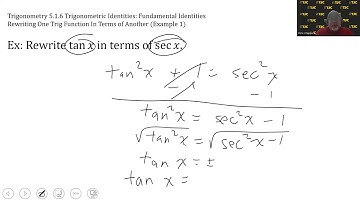 Trigonometry 5.1.6 Trigonometric Identities: Fundamental Identities
Rewriting One Trig Function In Terms of Another (Example 1)
Ex: Rewrite tan x in terms of sec x.
tan²x + 1 = sec²x
- 1 - 1
tan²x = sec²x - 1
√tan²x = √sec²x-1
tan x = ±
tan x =